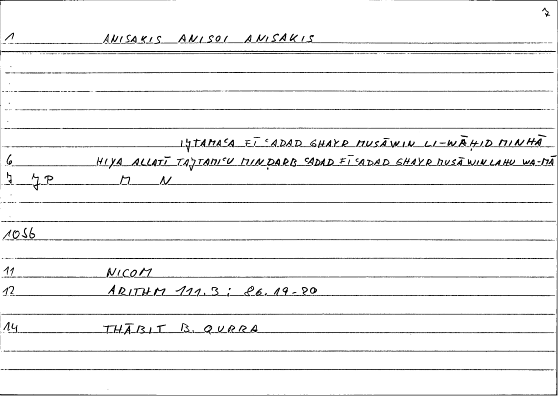 7
1 ANISAKIS ANISOI ANISAKIS
IJTAMAʿA FĪ ʿADAD GHAYR MUSĀWIN LI-WĀḤID MINHĀ
6 HIYA ALLATĪ TAJTAMIʿU MIN ḌARB ʿADAD FĪ ʿADAD GHAYR MUSĀWIN LAHU WA-MĀ
7 JP M N
1056
11 NICOM
12 ARITHM 111.3; 86.19-20
14 THĀBIT B. QURRA